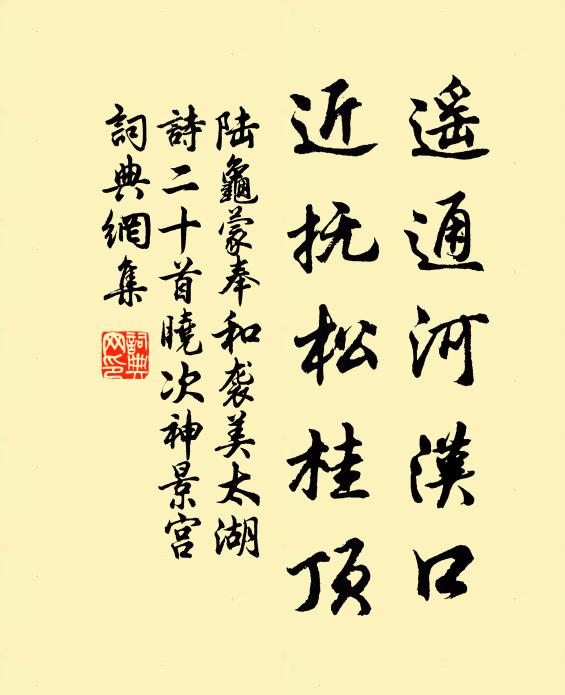 遥通河漢口
近抚松桂顶
陆龜蒙奉和袭美太湖
詩二十首曉次神景宫
詞典網集
詞典
网印